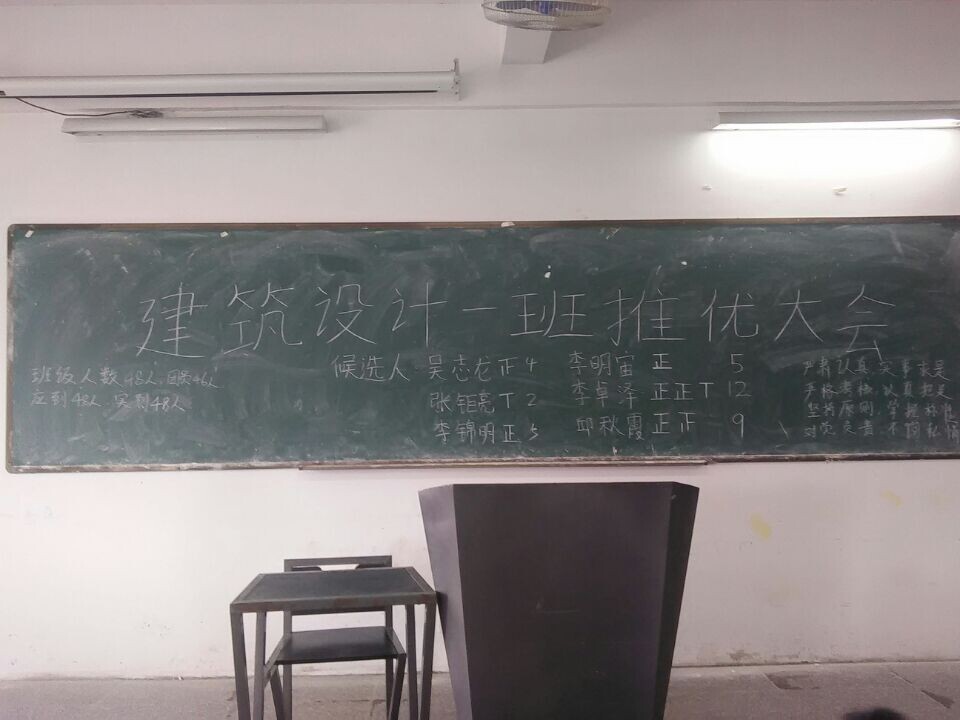 建筑设计一班推优大会
班级人数48人,团员46人
应到48人,实到48人
候选人 吴志龙 正 4 李明宙 正 5
张钜亮 T 2 李卓泽 正正T 12
李锦明 正 5 邱秋霞 正正 9
严肃认真,实事求是
严格考核,认真把关
坚持原则,掌握标准
对党负责,不徇私情